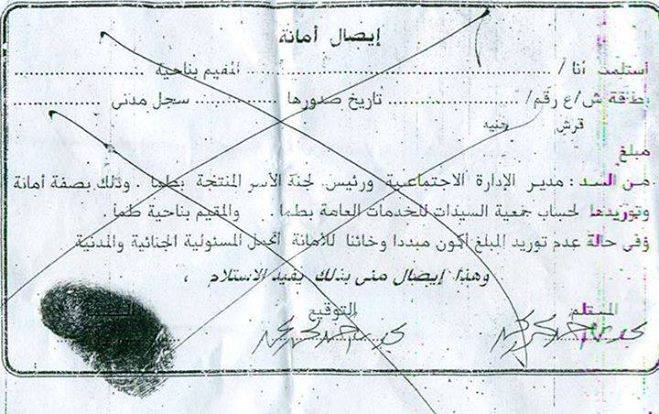 إيصال أمانة
استلمت أنا / .......... المقيم بناحية ..........
بطاقة ش/ع رقم/ .......... تاريخ صدورها .......... سجل مدنى ..........
قرش جنيه
مبلغ
من السيد : مدير الإدارة الاجتماعية ورئيس لجنة الأسر المنتجة بطما . وذلك بصفة أمانة
وتوريدها لحساب جمعية السيدات للخدمات العامة بطما . والمقيم بناحية طما .
وفى حالة عدم توريد المبلغ أكون مبددا وخائنا للأمانة أتحمل المسئولية الجنائية والمدنية
وهذا إيصال منى بذلك يفيد الاستلام ،
المستلم التوقيع